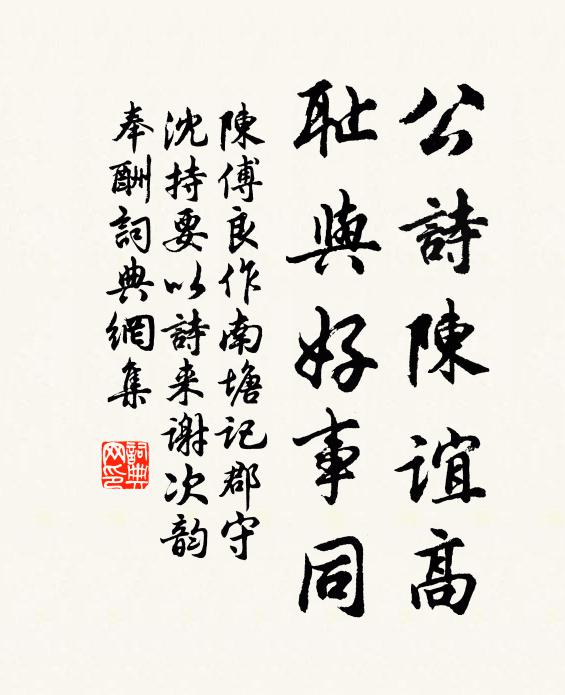 公詩陳誼高
耻與好事同
陳傅良作南塘記郡守
沈持要以詩来谢次韵
奉酬詞典網集
詞典
网印